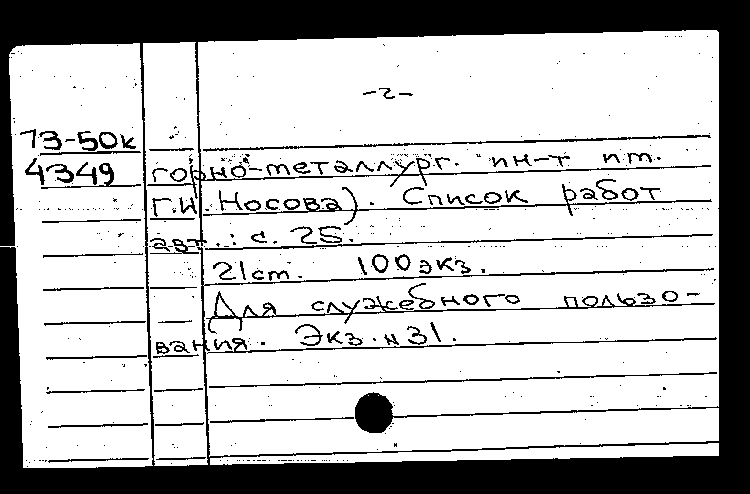 -2-
73-50к
4349 горно-металлург. ин-т им.
Г.И. Носова). Список работ
авт.: с. 25.
21 ст. 100 экз.
Для служебного пользо-
вания. Экз. N 31.